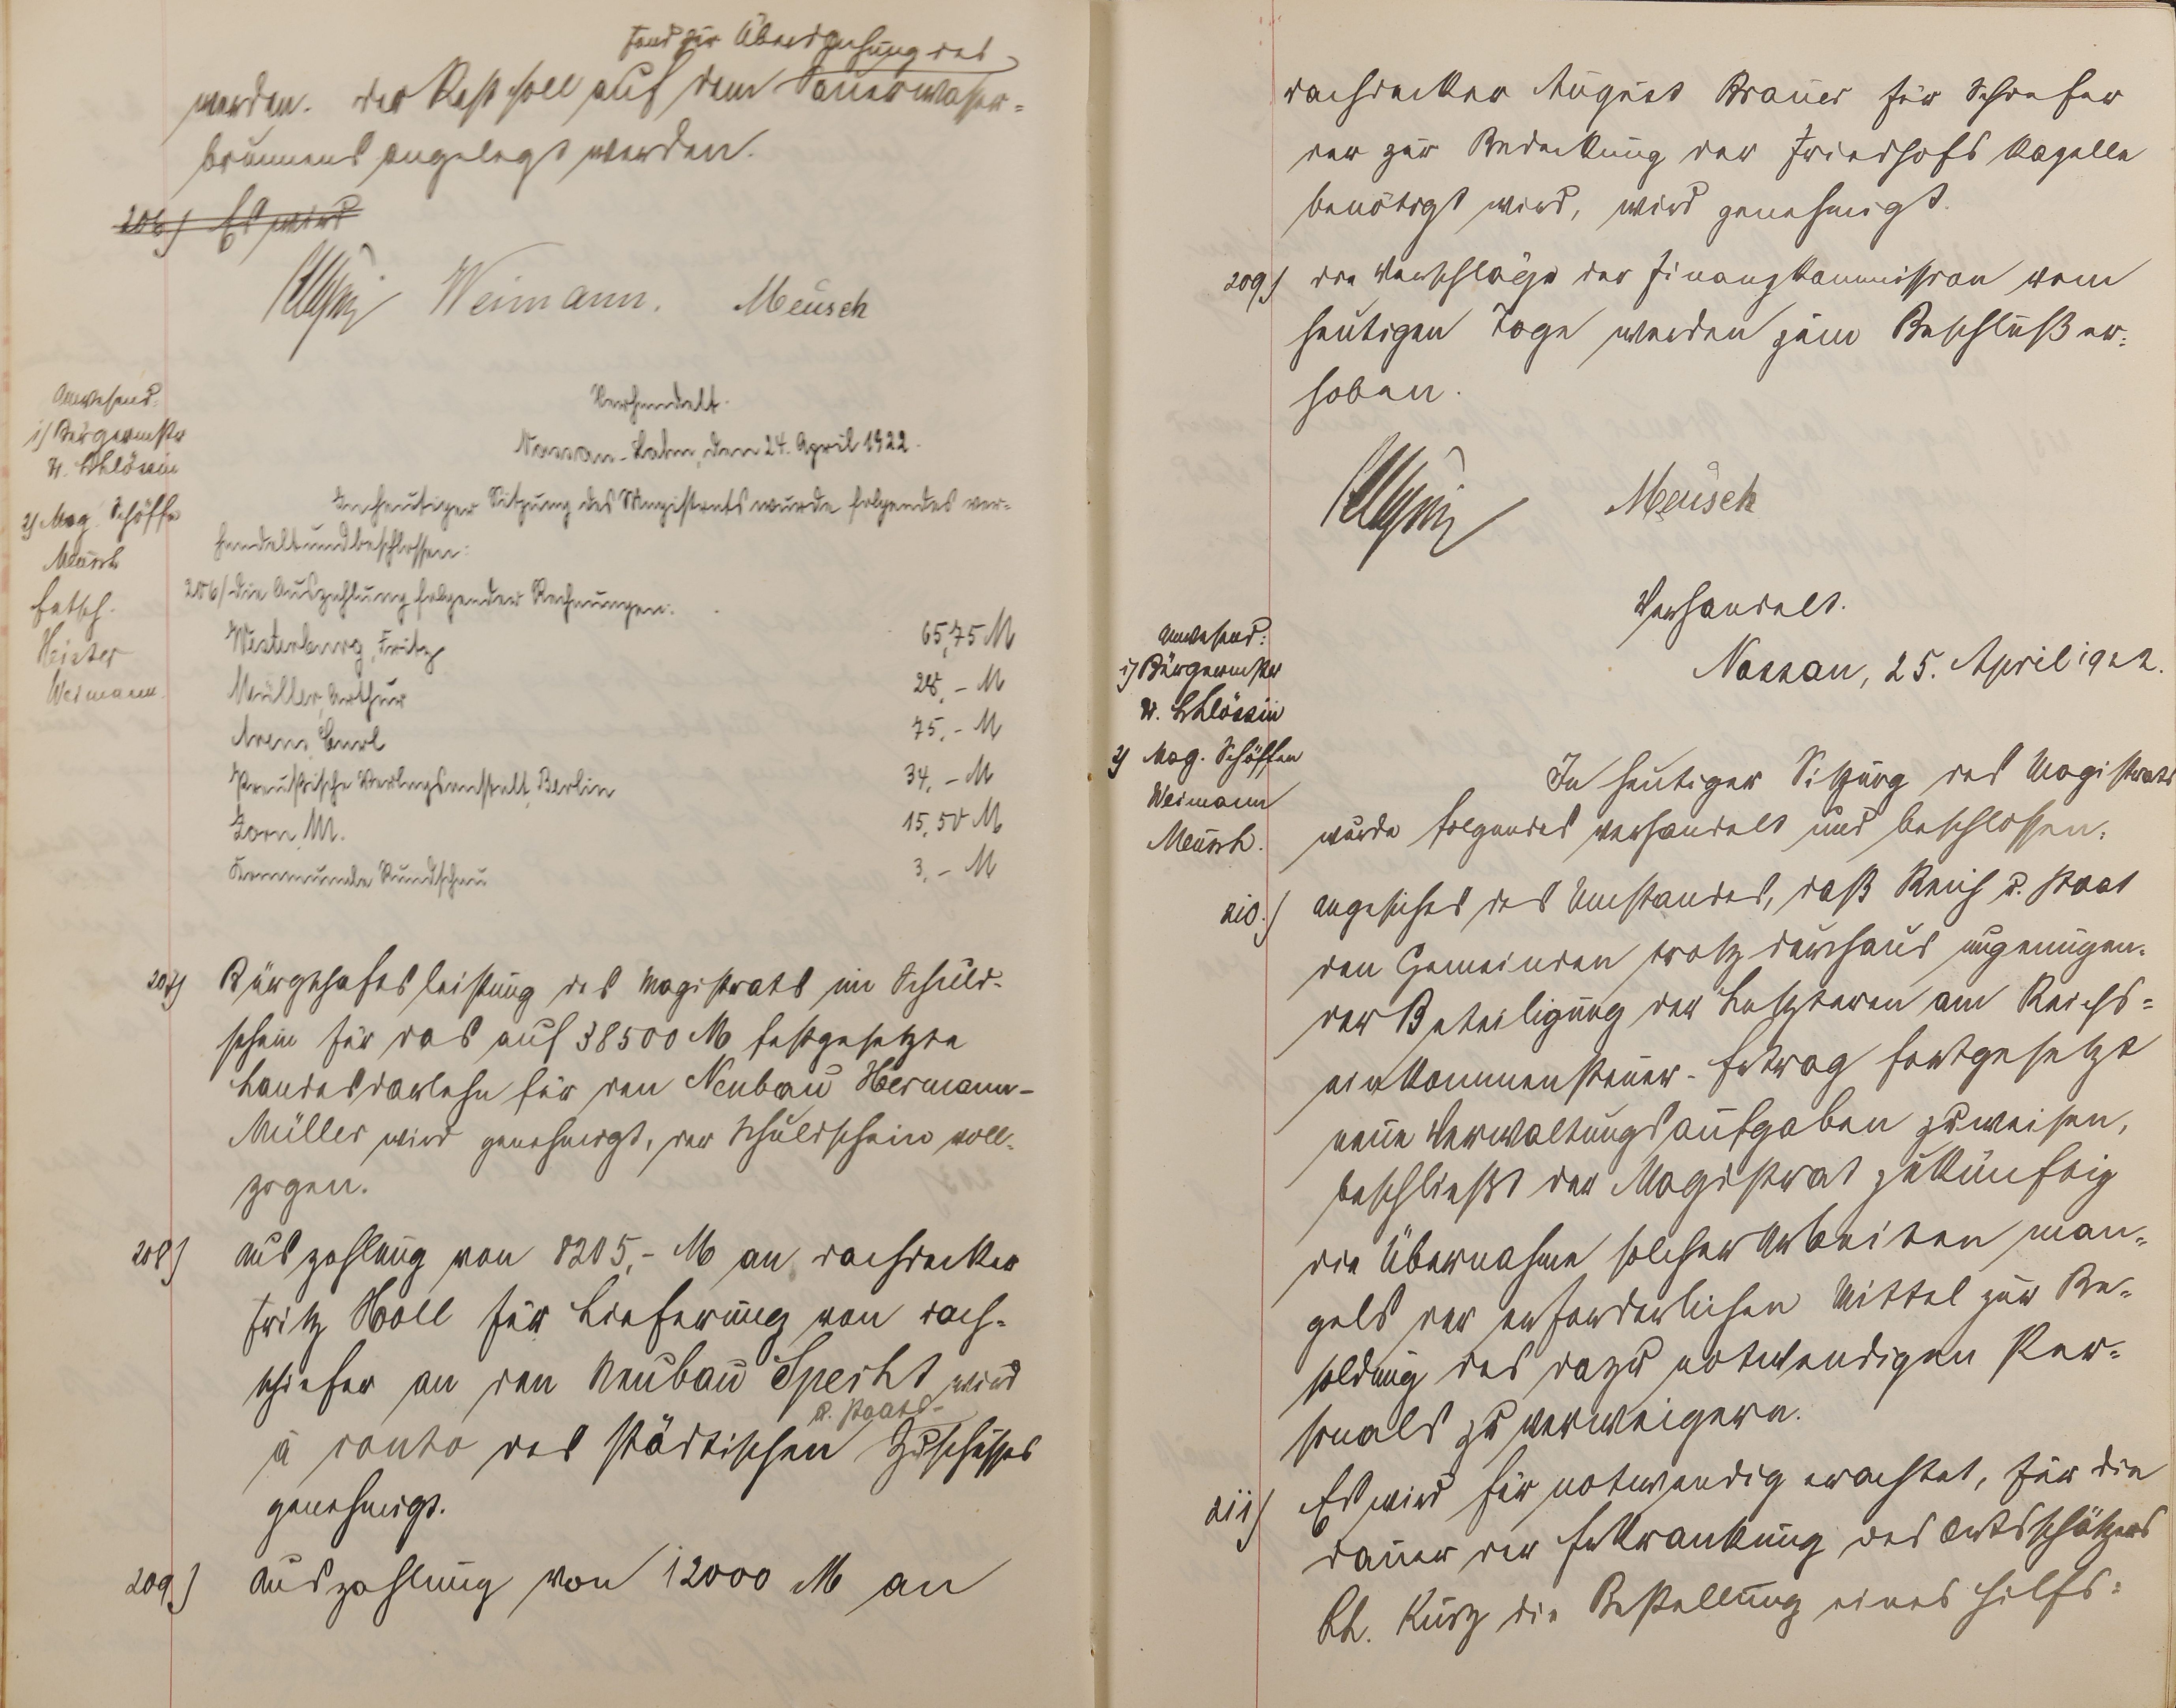 fond zur Überdachung des
werden. Der Rest soll auf dem Sauerwasser=
brunnens angelegt werden.
206) Es wird
Weimann. Meusch
Anwesend:
1) Bürgermstr
H. Schlössin
2) Mag. Schöffe
Meusch
Heister
Weimann
Verhandelt.
Nassau-Lahn, den 24. April 1922.
In heutiger Sitzung des Magistrats wurde folgendes ver=
handelt und beschlossen:
206) Die Auszahlung folgender Rechnungen.
Westerburg, Fritz 65,75 M
Müller, Arthur 28,- M
Arens, Carl 75,- M
Preußische Verlagsanstalt, Berlin 34,- M
Zorn, M. 15,50 M
Kommunale Rundschau 3,- M
207) Bürgschaftsleistung des Magistrats im Schuld-
schein für das auf 38500 M festgesetzte
Landesdarlehn für den Neubau Hermann-
Müller wird genehmigt, der Schuldschein voll-
zogen.
208) Auszahlung von 8205,- M an Dachdecker
Fritz Holl für Lieferung von Dach-
schiefer an den Neubau Specht wird
u. staatl-
à conto des städtischen Zuschusses
genehmigt.
209) Auszahlung von 12000 M an
Dachdecker August Brauer für Schiefer
der zur Bedeckung der Friedhofs Kapelle
benötigt wird, wird genehmigt.
209) Die Vorschläge der Finanzkommission vom
heutigen Tage werden zum Beschluß er=
hoben.
Meusch
Verhandelt.
Nassau, 25. April 1922.
Anwesend:
1) Bürgermstr
H. Schlössin
2) Mag. Schöffen
Weimann
Meusch.
In heutiger Sitzung des Magistrats
wurde folgendes verhandelt und beschlossen:
210.) Angesichts des Umstandes, daß Reich u. Staat
den Gemeinden trotz durchaus ungenügen=
der Beteiligung der Letzteren am Reichs=
einkommensteuer-Ertrag fortgesetzt
neue Verwaltungsaufgaben zuweisen,
beschließt der Magistrat zukünftig
die Übernahme solcher Arbeiten man=
gels der erforderlichen Mittel zur Be=
soldung des dazu notwendigen Per=
sonals zu verweigern.
211) Es wird für notwendig erachtet, für die
Dauer der Erkrankung des Ortsschätzers
Ch. Kurz die Bestellung eines Hilfs=